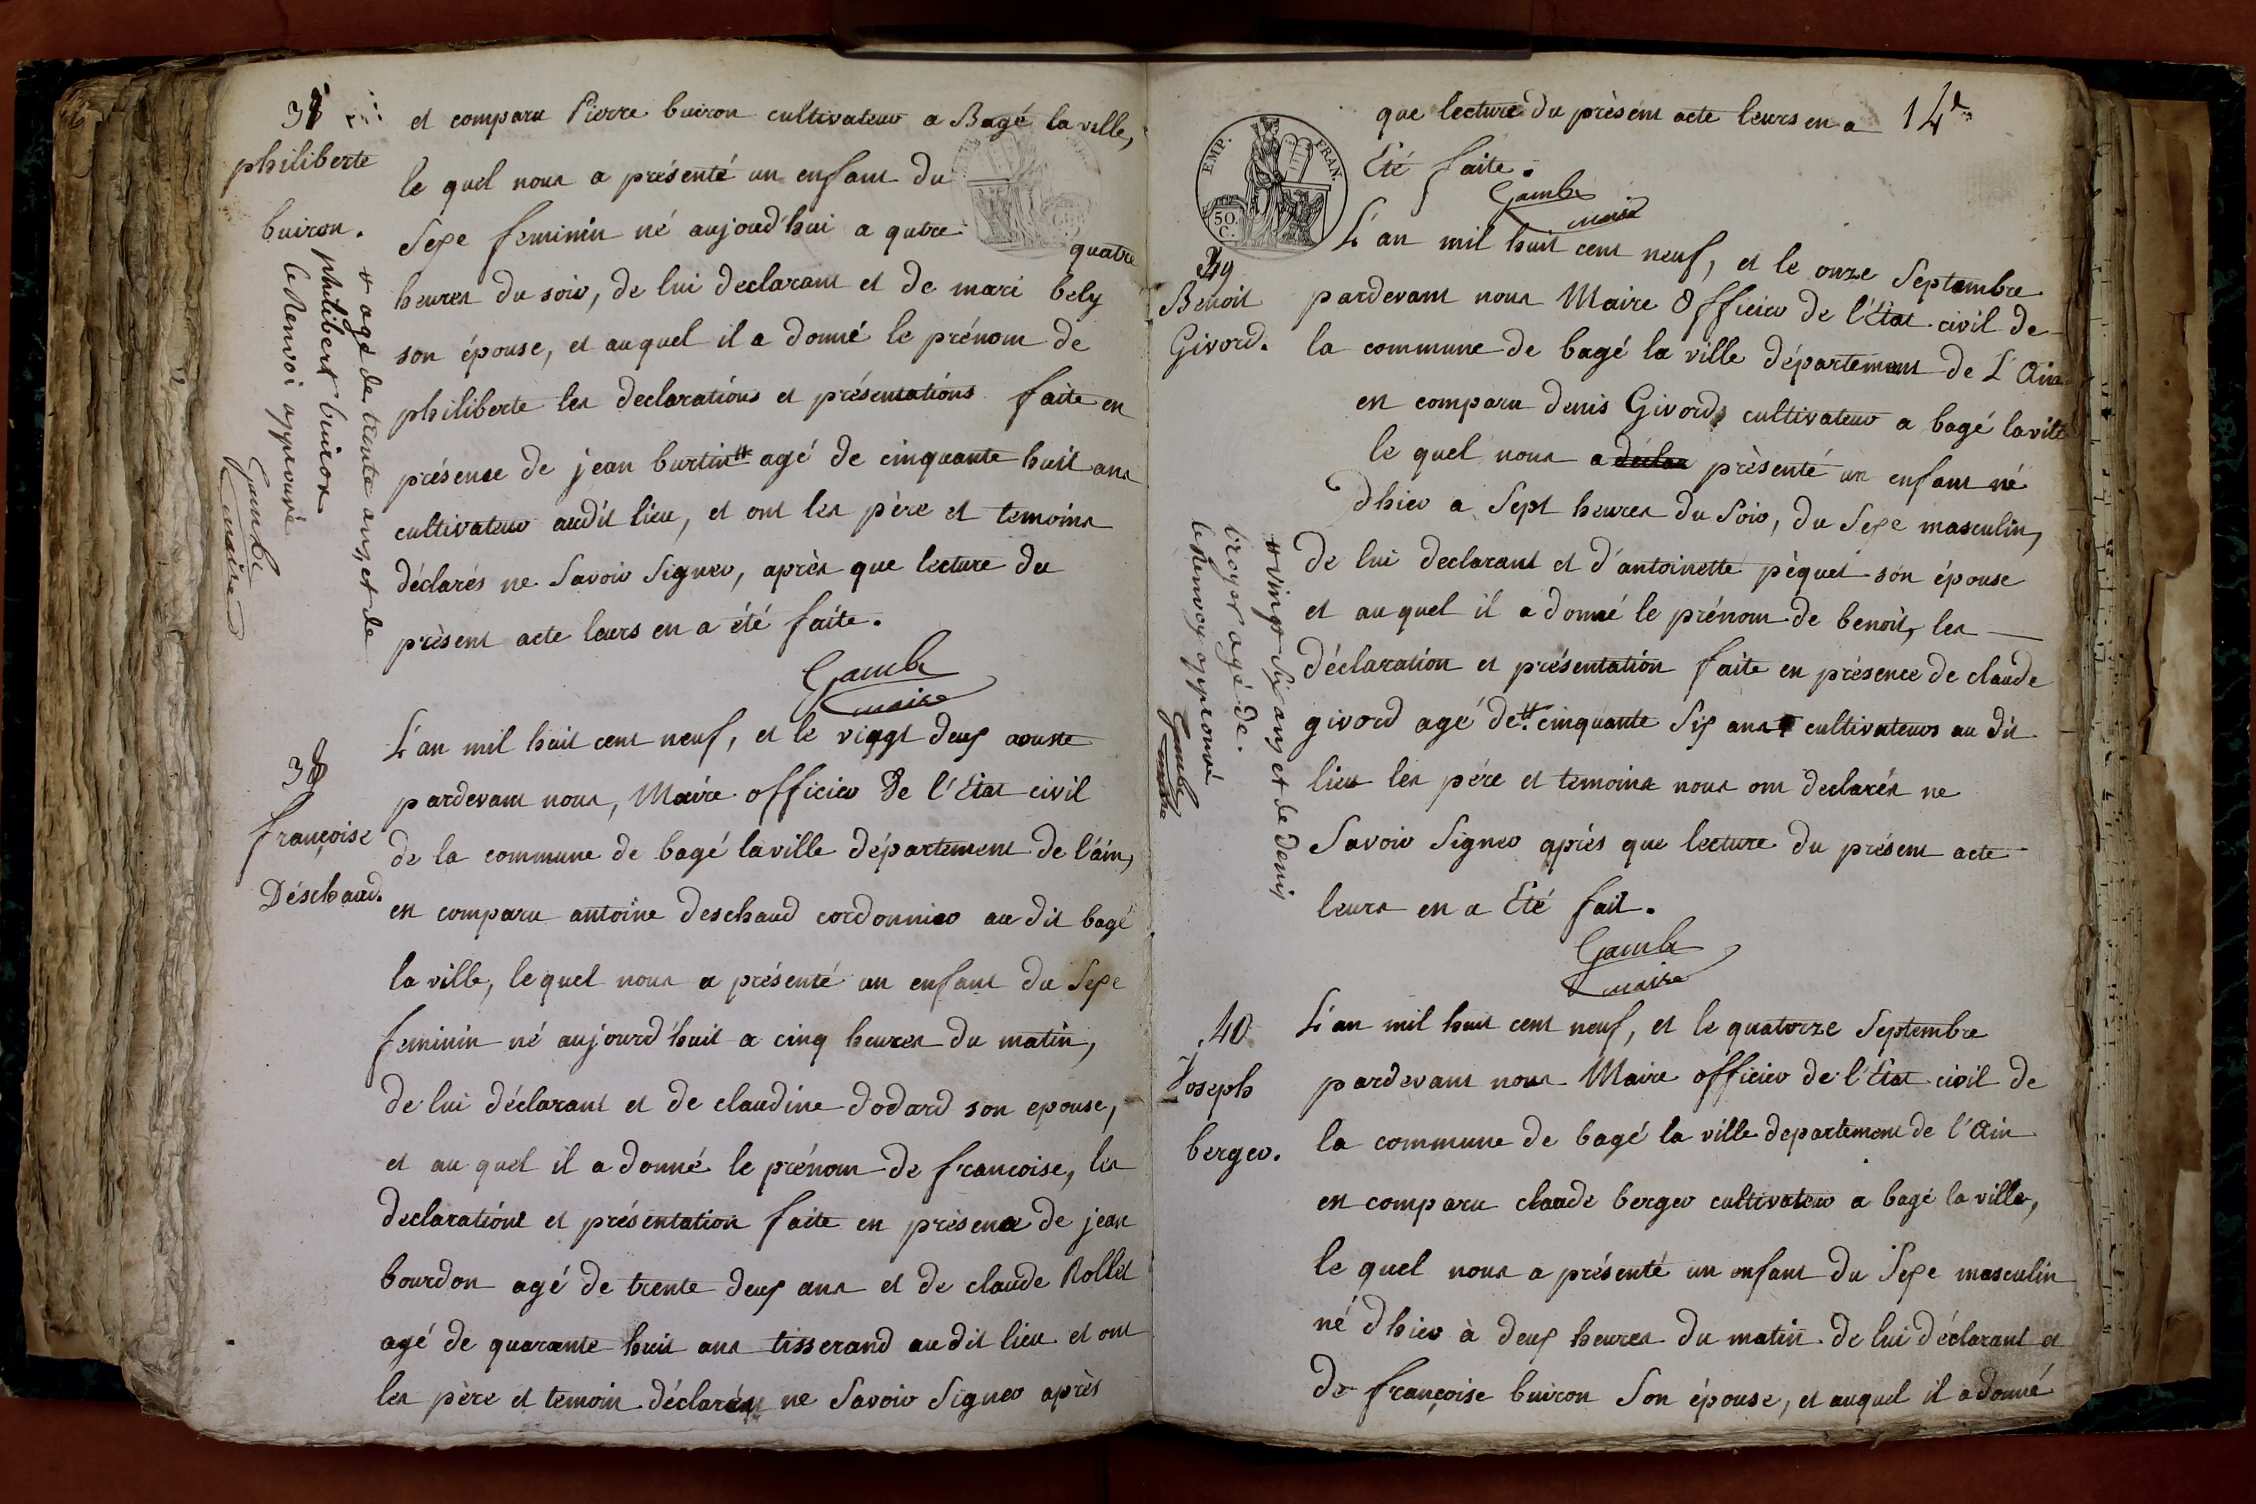 philiberte
buiron.
et comparu Pierre buiron cultivateur a Bagé la ville,
le quel nous a présenté un enfant du
Sexe feminin né aujourd'hui a qutre
quatre
heures du soir, de lui declarant et de mari bely
son épouse, et auquel il a donné le prénom de
philiberte les declarations et présentations faite en
présense de jean burtin # agé de cinquante huit ans
cultivateur audit lieu, et ont les père et temoins
déclarés ne Savoir Signer, après que lecture du
présent acte leurs en a été faite.
Gambe
maire
# agé de trente ans, et de
philibert buiron
le Renvoi approuvé
Gambe
maire
38
françoise
Déschaud.
L'an mil huit cent neuf, et le vingt deux aouste
pardevant nous, Maire officier de l'Etat civil
de la commune de bagé la ville département de l'ain,
en comparu antoine deschaud cordonnier au dit bagé
la ville, lequel nous a présenté un enfant du Sexe
feminin né aujourd'huit a cinq heures du matin,
de lui déclarant et de claudine dodard son epouse,
et au quel il a donné le prénom de francoise, les
declarations et présentation faite en présence de jean
bourdon agé de trente deux ans et de claude Rollet
agé de quarante huit ans tisserand au dit lieu et ont
les père et temoin déclarés ne Savoir Signer après
14e
que lecture du présent acte leurs en a
Eté faite.
Gambe
maire
EMP. FRAN.
50.
C.
39
Benoit
Givord.
L'an mil huit cent neuf, et le onze Septembre
pardevant nous Maire Officier de l'Etat civil de
la commune de bagé la ville département de L'Ain
en comparu denis Givord cultivateur a bagé la ville
le quel nous a déclar présenté un enfant né
dhier a Sept heures du Soir, du Sexe masculin,
de lui declarant et d'antoinette péquet son épouse
et au quel il a donné le prénom de benoit, les
déclaration et présentation faite en présence de claude
givord agé de # cinquante Six ans cultivateurs au dit
lieu les père et temoins nous ont declarés ne
Savoir Signer après que lecture du présent acte
leurs en a Eté fait.
Gambe
maire
# vingt Six ans et de denis
broyer agé de.
le Renvoy approuvé
Gambe
maire
40
Joseph
berger.
L'an mil huit cent neuf, et le quatorze Septembre
pardevant nous Maire officier de l'Etat civil de
la commune de bagé la ville departement de l'Ain
en comparu claude berger cultivateur a bagé la ville,
le quel nous a présenté un enfant du Sexe masculin
né dhier à deux heures du matin de lui déclarant et
de françoise buiron Son épouse, et auquel il a donné